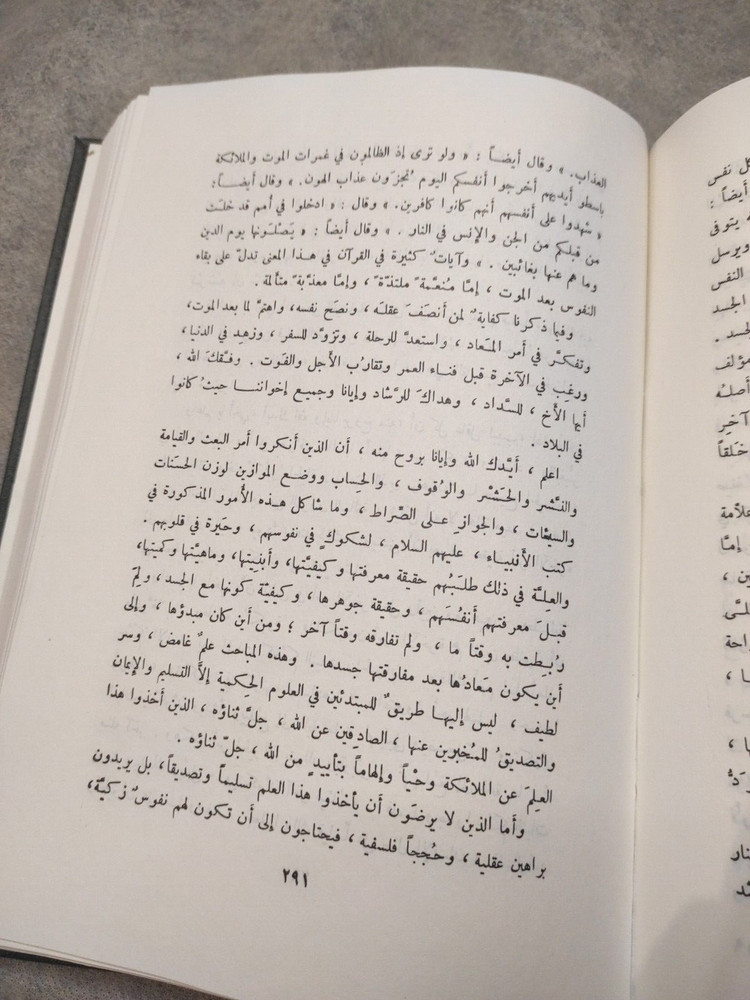 العذاب. » وقال أيضاً : « ولو ترى إذ الظالمون في غمرات الموت والملائكة
باسطو أيديهم أخرجوا أنفسكم اليوم تُجزَون عذاب الهون. » وقال أيضاً :
« شهدوا على أنفسهم أنهم كانوا كافرين. » وقال : « ادخلوا في أمم قد خلَت
من قبلكم من الجن والإنس في النار . » وقال أيضاً : « يَصْلَونها يوم الدين
وما هم عنها بغائبين . » وآياتٌ كثيرة في القرآن في هذا المعنى تدلّ على بقاء
النفوس بعد الموت ، إمّا مُنعَّمةً ملتذّةً ، وإمّا معذّبةً متألمة .
وفيما ذكرنا كفايةٌ لمن أنصَفَ عقلَه ، ونصَح نفسَه، واهتمَّ لما بعد الموت،
وتفكّر في أمر المَعاد ، واستعدَّ للرحلة ، وتزوَّد للسفر ، وزهِد في الدنيا ،
ورغِب في الآخرة قبل فناء العمر وتقارُب الأجل والفَوت . وفّقكَ الله ،
أيها الأخ ، للسَّداد ، وهداكَ للرَّشاد وإيانا وجميع إخواننا حيثُ كانوا
في البلاد .
اعلم ، أيّدك الله وإيانا بروح منه ، أن الذين أنكروا أمر البعث والقيامة
والنَّشر والحَشْر والوُقوف ، والحِساب ووضع الموازين لوزن الحَسَنات
والسيئات ، والجوازِ على الصِّراط ، وما شاكل هذه الأُمور المذكورة في
كتب الأنبياء ، عليهم السلام ، لشكوكٍ في نفوسهم ، وحَيرة في قلوبهم .
والعِلّة في ذلك طلَبُهم حقيقة معرفتها وكيفيّتها، وأبنِيتها، وماهيّتها وكميتها،
قبلَ معرفتهم أنفُسَهم ، وحقيقة جوهرها ، وكيفيّة كونها مع الجسد، ولِمَ
رُبِطت به وقتاً ما ، ولم تفارقه وقتاً آخر ؛ ومن أين كان مبدؤها ، وإلى
أين يكون مَعادُها بعد مفارقتها جسدها . وهذه المباحث علمٌ غامض ، وسر
لطيف ، ليس إليها طريقٌ للمبتدئين في العلوم الحِكمية إلاَّ التسليم والإيمان
والتصديقُ للمُخبرين عنها ، الصادِقين عن الله ، جلّ ثناؤه ، الذين أخذوا هذا
العِلمَ عن الملائكة وحْياً وإلهاماً بتأييدٍ من الله ، جلّ ثناؤه .
وأما الذين لا يرضَون أن يأخذوا هذا العلم تسليماً وتصديقاً، بل يريدون
براهين عقلية ، وحُججاً فلسفية ، فيحتاجون إلى أن تكون لهم نفوسٌ زكيّة،
٢٩١
كل نفس
أيضاً :
يتوفى
ويرسل
النفس
الجسد
لجسد .
مؤلف
أصلهُ
آخرِ
خَلقاً
علاّمة
إمّا